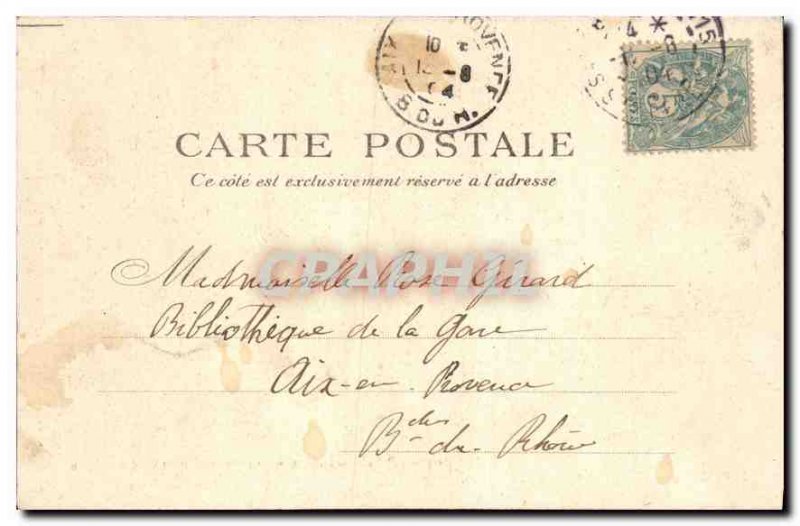 AIX PROVENCE
10
15 -8
04
B. DU R.
CARTE POSTALE
Ce côté est exclusivement réservé a l'adresse
CPAPHIL
Mademoiselle Rose Girard
Bibliothèque de la Gare
Aix-en-Provence
Bches du Rhône